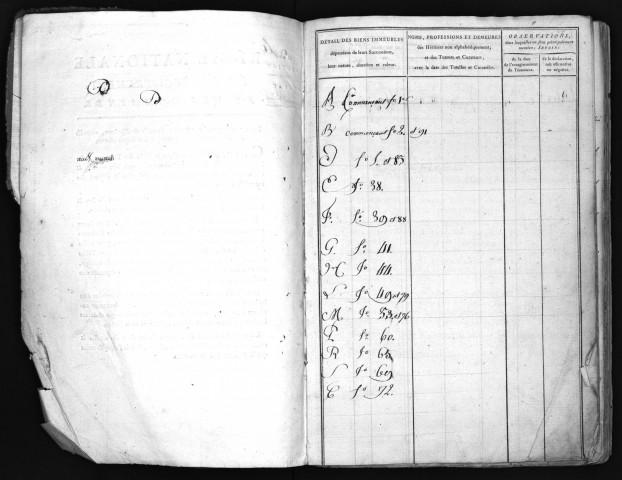 D
DÉTAIL DES BIENS IMMEUBLES
dépendans de leurs Successions,
leur nature, situation et valeur.
NOMS, PROFESSIONS ET DEMEURES
des Héritiers non alphabétiquement,
et des Tuteurs et Curateurs,
avec la date des Tutelles et Curatelles.
OBSERVATIONS,
dans lesquelles on fera principalement
mention; SAVOIR:
de la date
de l'enregistrement
du Testament.
de la déclaration,
soit affirmative
ou négative.
A Commençant fo 1er
B commençant fo 2. et 91
D fo 5. et 83
E fo 38.
F. fo 39 et 88
G. fo 41
H fo 44.
L fo 49 et 79
M. fo 53. et 76
P fo 60.
R fo 66
S fo 69
T fo 72.